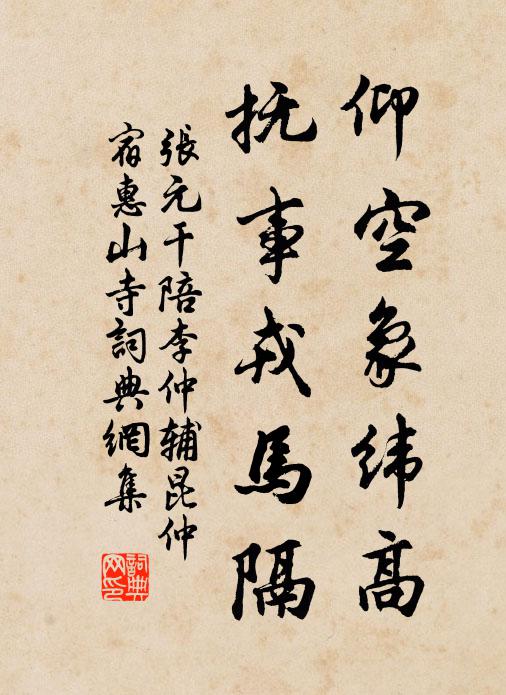 仰空象緯高
抚事戎馬隔
張元干陪李仲輔昆仲
宿惠山寺詞典網集
詞典网印